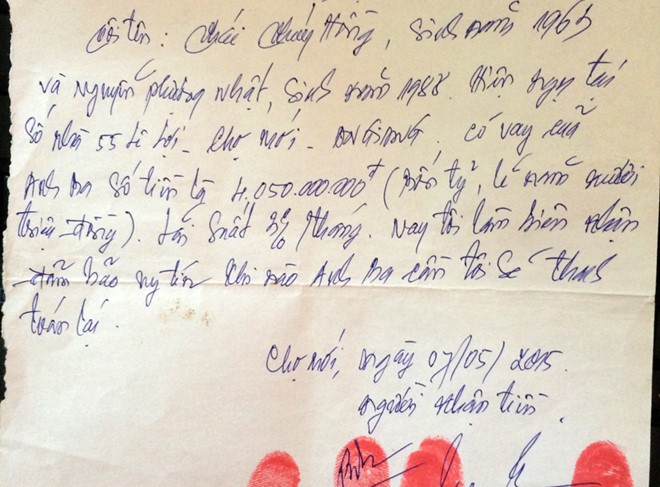 Tôi tên: Thái Thúy Hồng, Sinh năm 1965
và Nguyễn Phương Nhật, Sinh năm 1988. Hiện ngụ tại
Số nhà 55 Lê Lợi - Chợ Mới - An Giang. có vay của
Anh Ba Số tiền là 4.050.000.000đ (Bốn tỷ, lẻ năm mươi
triệu đồng). Lãi Suất 2% /tháng. Nay tôi làm biên nhận
đảm bảo uy tín khi nào Anh Ba cần tôi Sẽ thanh
toán lại.
Chợ Mới, ngày 07/05/2015
người nhận tiền